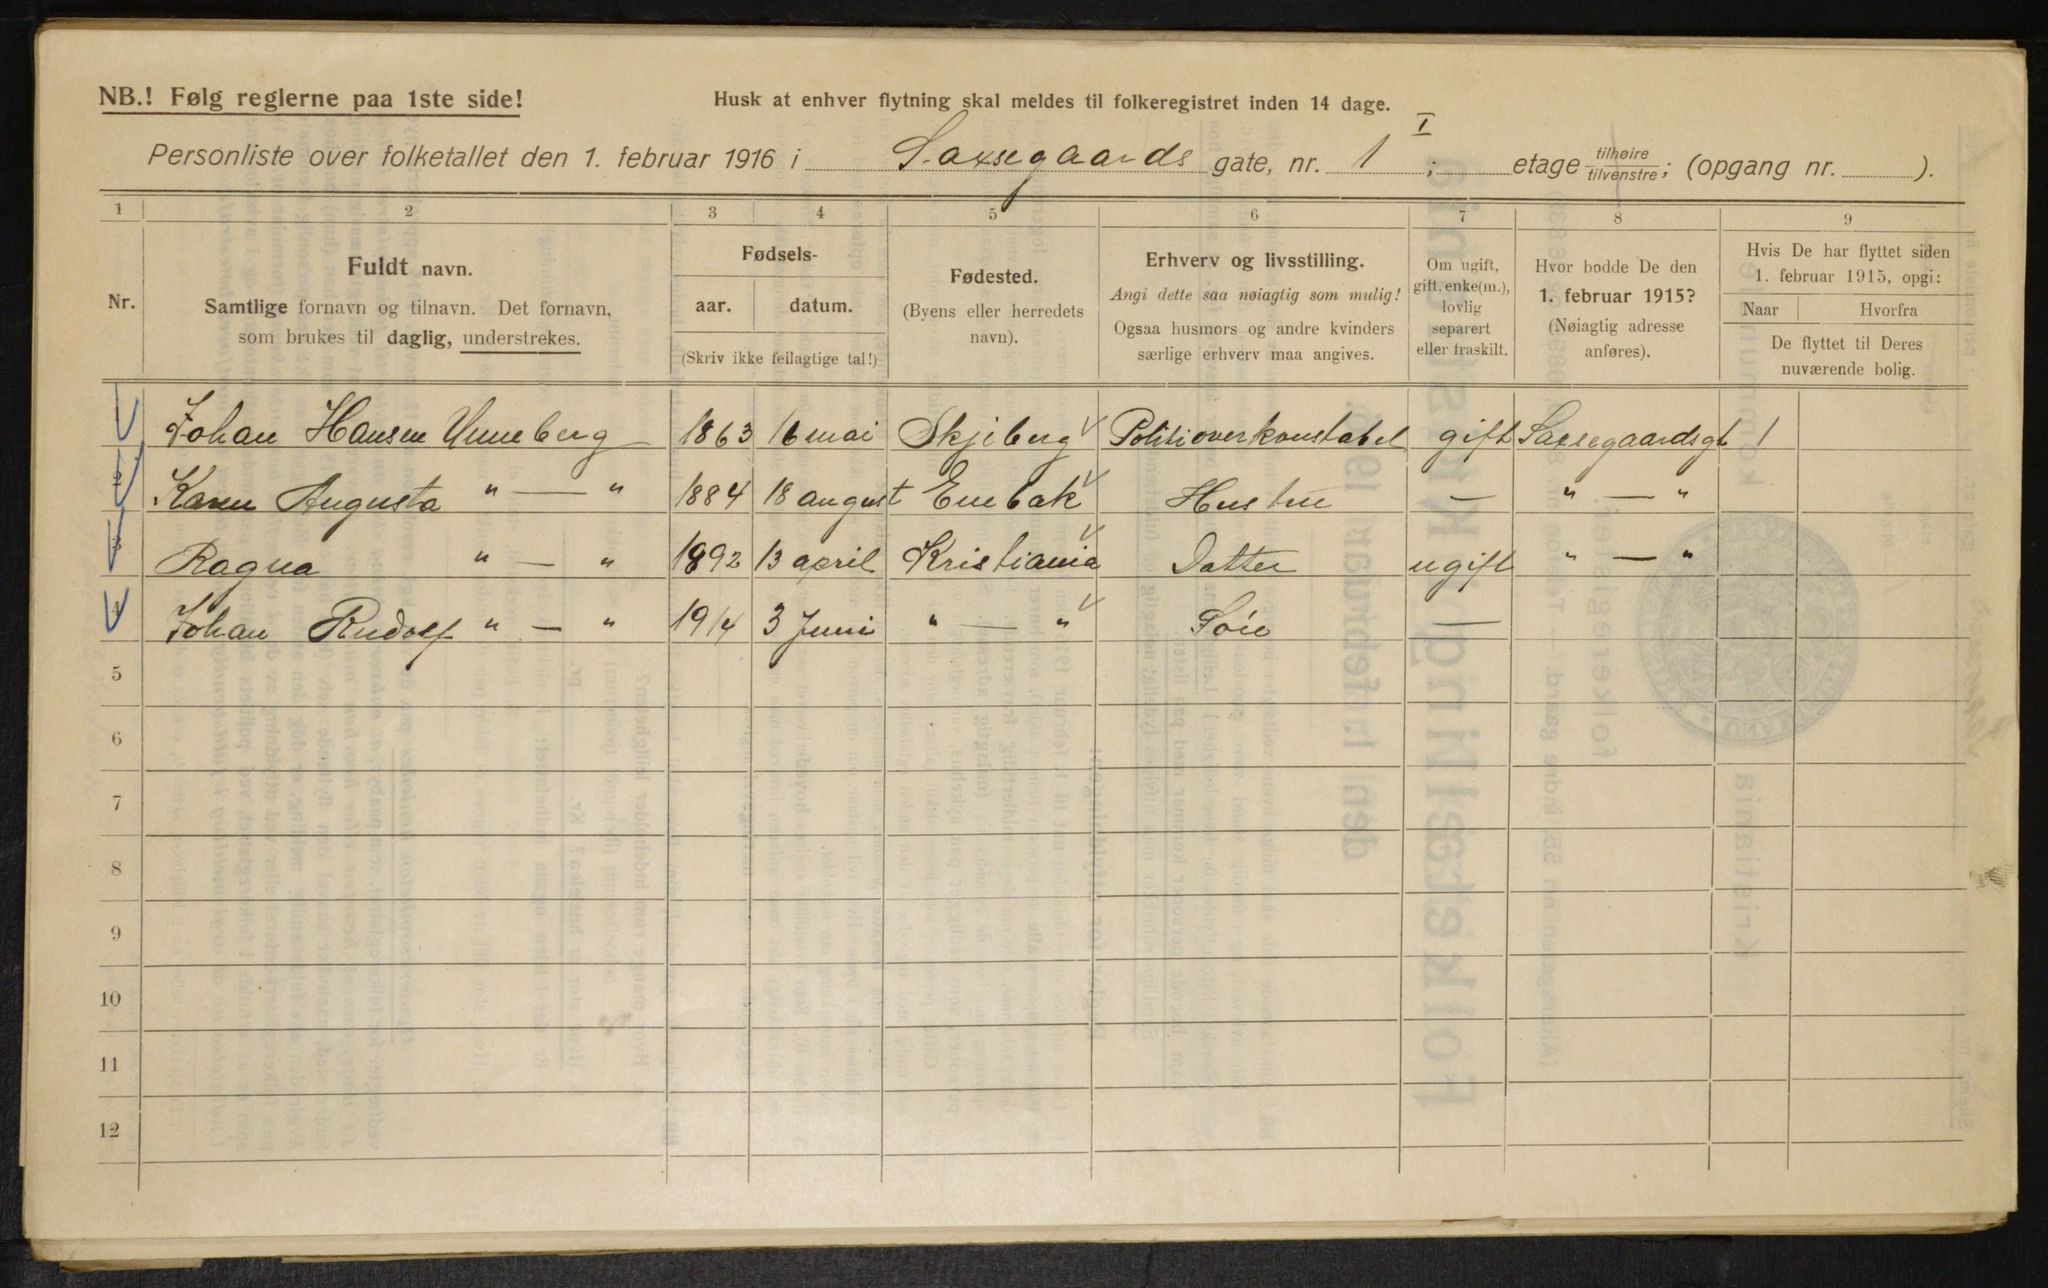 NB.! Følg reglerne paa 1ste side!
Husk at enhver flytning skal meldes til folkeregistret inden 14 dage.
Personliste over folketallet den 1. februar 1916 i Saxsegaards gate, nr. 1 I; etage tilhøire/tilvenstre; (opgang nr. ).
1 2 3 4 5 6 7 8 9
Nr.
Fuldt navn.
Samtlige fornavn og tilnavn. Det fornavn,
som brukes til daglig, understrekes.
Fødsels-
aar. datum.
(Skriv ikke feilagtige tal!)
Fødested.
(Byens eller herredets
navn).
Erhverv og livsstilling.
Angi dette saa nøiagtig som mulig!
Ogsaa husmors og andre kvinders
særlige erhverv maa angives.
Om ugift,
gift, enke(m.),
lovlig
separert
eller fraskilt.
Hvor bodde De den
1. februar 1915?
(Nøiagtig adresse
anføres).
Hvis De har flyttet siden
1. februar 1915, opgi:
Naar Hvorfra
De flyttet til Deres
nuværende bolig.
Johan Hansen Unneberg 1863 16 mai Skjeberg Politioverkonstabel gift Saxsegaardsgt 1
2 Karen Augusta " — " 1884 18 august Enebak Hustru — " — "
3 Ragna " — " 1892 13 april Kristiania Datter ugift " — "
4 Johan Rudolf " — " 1914 3 Juni " — " Søn —
5
6
7
8
9
10
11
12